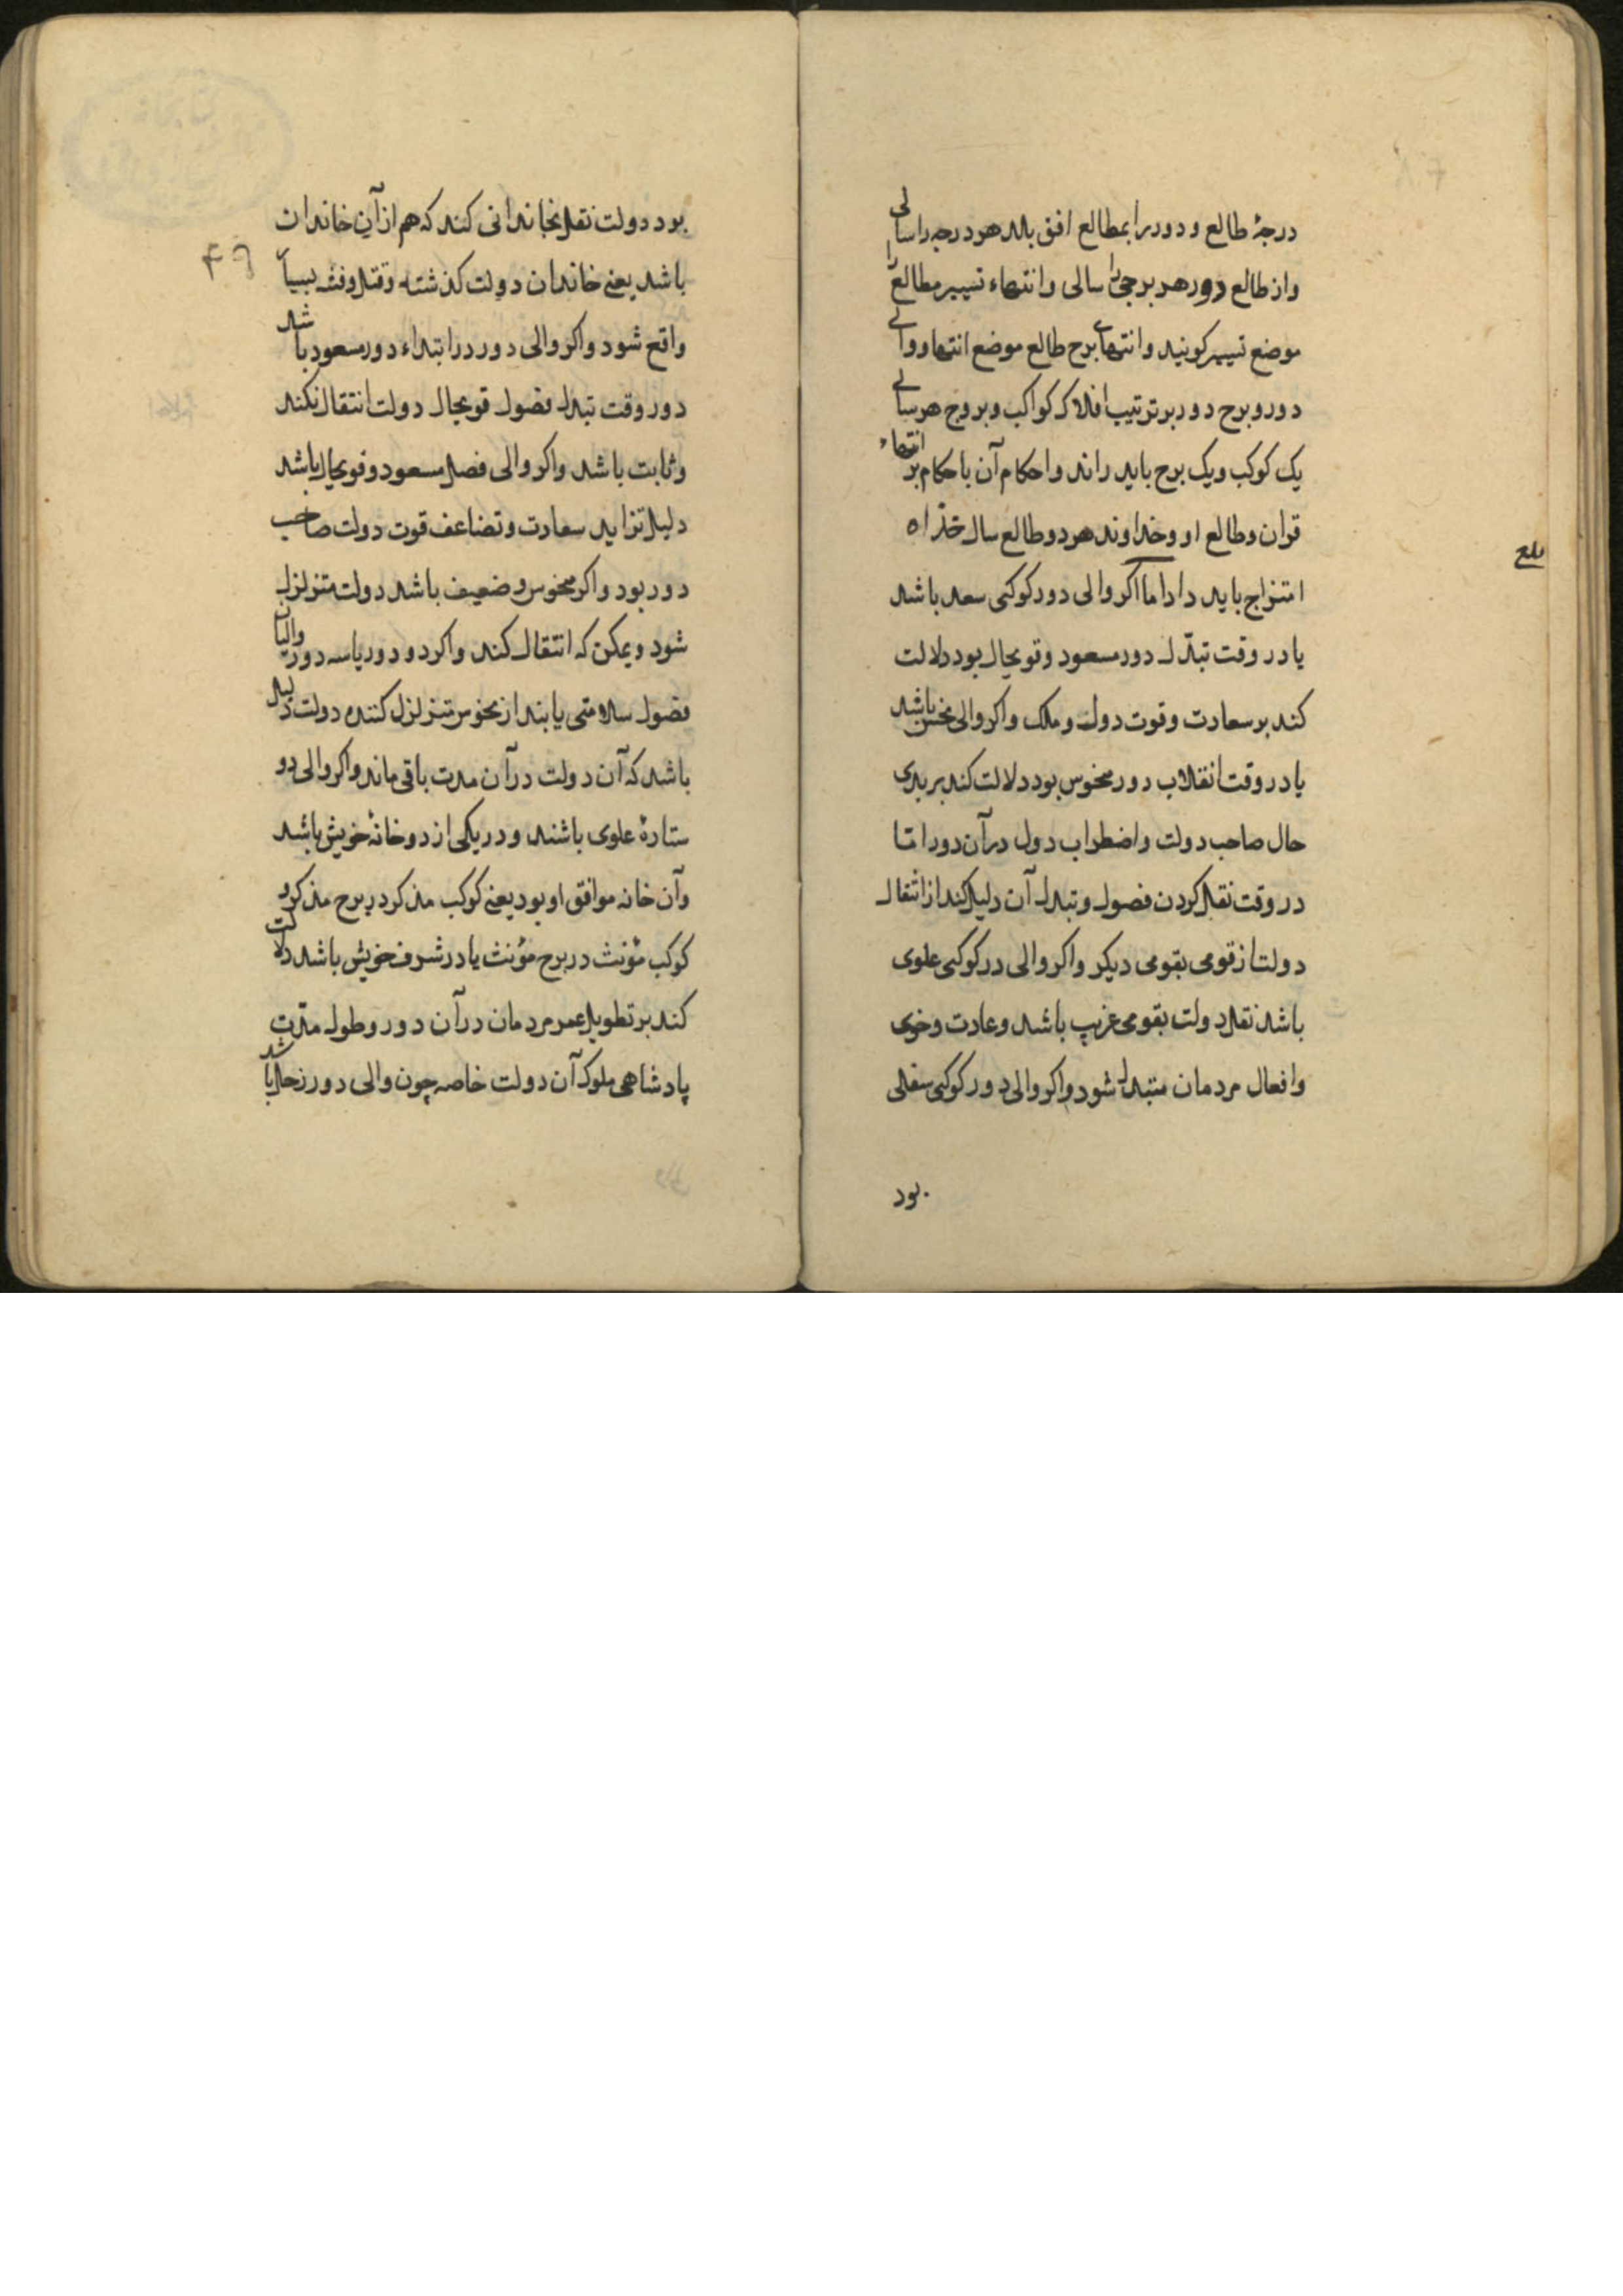 درجهٔ طالع و دور را بمطالع افق بلد هر درجه را سالی
و از طالع دور هر برجی را سالی و انتهاء تسییر مطالع را
موضع تسییر کویند و انتهاے برج طالع موضع انتها و والے
دور و برج دور بر ترتیب افلاک کواکب و بروج هر سالے
یک کوکب و یک برج باید راند و احکام آن باحکام بر انتهاء
قران و طالع او و خداوند هر دو و طالع سال
امتزاج باید داد اما اکر والی دور کوکبی سعد باشد
یا در وقت تبدّل دور مسعود و قویحال بود دلالت
کند بر سعادت و قوت دول و ملک و اکر والی نحس باشد
یا در وقت انقلاب دور منحوس بود دلالت کند بر بدی
حال صاحب دولت و اضطراب دول در آن دور امّا
در وقت نقل کردن فصول و تبدل آن دلیل کند از انتقال
دولت از قومی بقومی دیکر و اکر والی در کوکبی علوی
باشد نقل دولت بقومی غریب باشد و عادت و خوی
و افعال مردمان متبدل شود و اکر والی دور کوکبی سفلی
بود
بلغ
بود دولت نقل بخاندانی کند که هم از آن خاندان
باشد یعنے خاندان دولت کذشته و قتل و فتنه بسیار
واقع شود و اکر والی دور در ابتداء دور مسعود باشد
دور وقت تبدل فصول قویحال دولت انتقال نکند
و ثابت باشد و اکر والی فصل مسعود و قویحال باشد
دلیل تزاید سعادت و تضاعف قوت دولت صاحب
دور بود و اکر منحوس و ضعیف باشد دولت متزلزل
شود و یمکن که انتقال کند و اکر دو دور یا سه دور والیان
فصول سلامتی یابند از نحوس متزلزل کننده دولت دلیل
باشد که آن دولت در آن مدت باقی ماند و اکر والی دو
ستارهٔ علوی باشند و در یکی از دو خانهٔ خویش باشد
و آن خانه موافق او بود یعنے کوکب مذکر در برج مذکر و
کوکب مؤنث در برج مؤنث یا در شرف خویش باشد دلالت
کند بر تطویل عمر مردمان در آن دور و طول مدّت
پادشاهی ملوک آن دولت خاصه چون والی دور زحل باشد